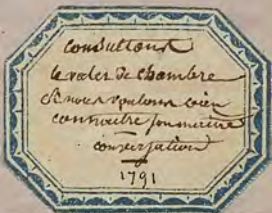 Consultons
le valet de chambre
si nous voulons bien
connoitre son maitre
conversation
1791